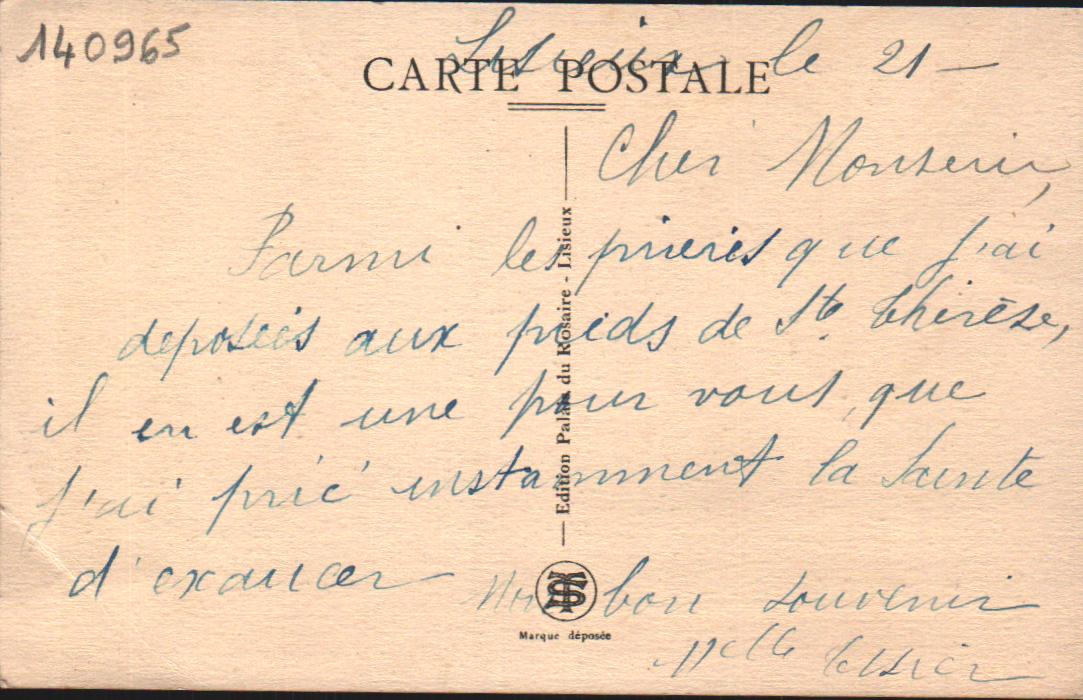 140965
Lisieux le 21 —
CARTE POSTALE
Cher Monsieur,
Parmi les prières que j'ai
deposées aux pieds de Ste Thérèse,
il en est une pour vous, que
j'ai prié instamment la Sainte
d'exaucer
Mon bon souvenir
Melle Tessier
— Edition Palais du Rosaire - Lisieux —
Marque déposée